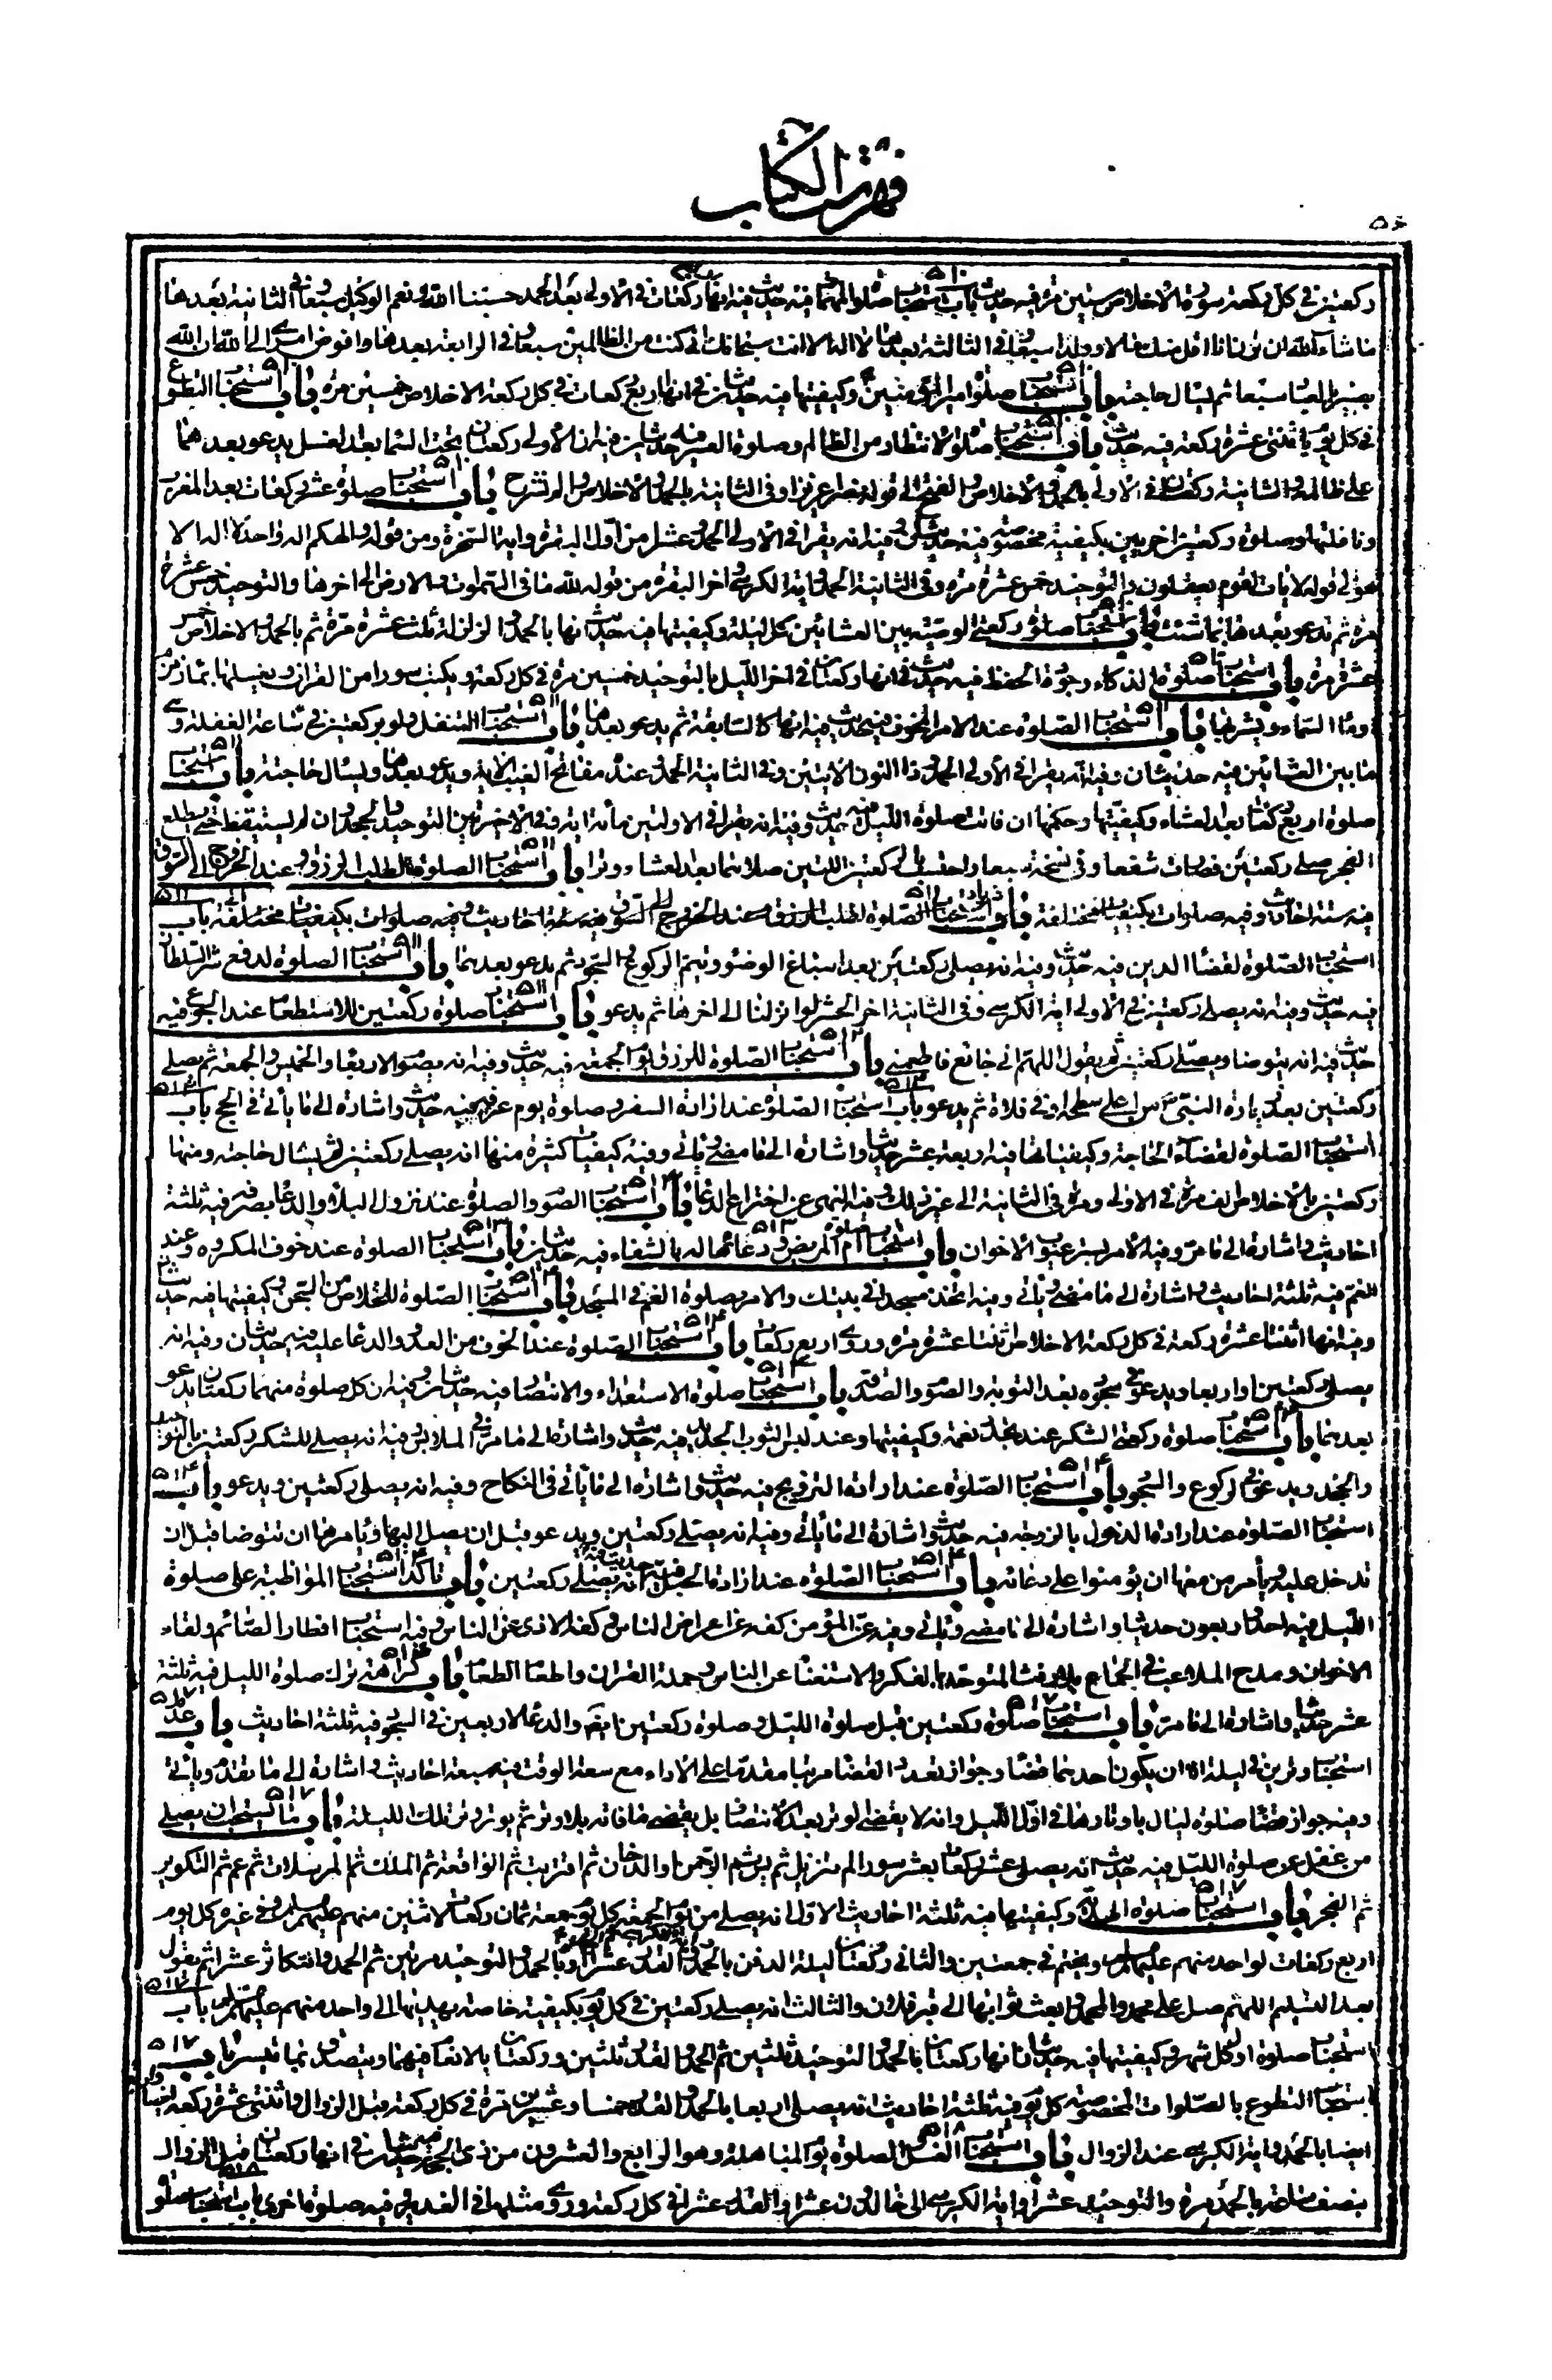 فهرست الكتاب
ركعتين في كل ركعة سورة الاخلاص ستين مرة فيه حديث باب استحباب صلوة المهمات فيه حديث فيه انها ركعات في الاولى بعد الحمد حسبنا الله ونعم الوكيل سبعا وفي الثانية بعدها
ما شاء الله ان ترن انا اقل منك مالا وولدا سبعا وفي الثالثة بعدها لا اله الا انت سبحانك اني كنت من الظالمين سبعا وفي الرابعة بعدها وافوض امري الى الله ان الله
بصير بالعباد سبعا ثم ليسال حاجته باب استحباب صلوة امير المؤمنين وكيفيتها فيه حديثان في انها اربع ركعات في كل ركعة الاخلاص خمسين مرة باب استحباب التطوع
في كل يوم باثنتي عشرة ركعة فيه حديث باب استحباب صلوة الانتظار من الظالم وصلوة العسر فيه حديثان فيه ان الاولى ركعتان تحت السما بعد الغسل يدعو بعدهما
على ظالمه والثانية ركعتان في الاولى بالحمد والاخلاص والفتح الى قوله نصرا عزيزا وفي الثانية بالحمد والاخلاص والم نشرح باب استحباب صلوة عشر ركعات بعد المغرب
ونافلتها وصلوة ركعتين اخريين بكيفية مخصوصة فيه حديثان فيه انه يقرا في الاولى الحمد وعشرا من اول البقرة واية السخرة ومن قوله والهكم اله واحد لا اله الا
هو الى قوله لايات لقوم يعقلون والتوحيد خمس عشرة مرة وفي الثانية الحمد واية الكرسي واخر البقرة من قوله لله ما في السموات والارض الى اخرها والتوحيد خمس عشرة
مرة ثم تدعو بعدها بما شئت باب استحباب صلوة ركعتي الوصية بين العشائين كل ليلة وكيفيتها فيه حديث انها بالحمد والزلزلة ثلث عشرة مرة ثم بالحمد والاخلاص خمس
عشرة مرة باب استحباب صلوة الذكاء وجودة الحفظ فيه حديث في انها ركعتان في اخر الليل بالتوحيد خمسين مرة في كل ركعة ويكتب سورا من القران ويغسلها بماء زمزم
او ماء السماء ويشربها باب استحباب الصلوة عند الامر المخوف فيه حديث فيه انها كالسابقة ثم يدعو بعدها باب استحباب التنفل ولو بركعتين في ساعة الغفلة وهي
ما بين العشائين فيه حديثان وفيه انه يقرا في الاولى الحمد وذا النون الايتين وفي الثانية الحمد وعنده مفاتح الغيب الاية ويدعو بعدها ويسال حاجته باب استحباب
صلوة اربع ركعات بعد العشاء وكيفيتها وحكمها ان فاتت صلوة الليل فيه حديث وفيه انه يقرا في الاولتين مأة اية وفي الاخيرتين التوحيد والجحد وان لم يستيقظ حتى يطلع
الفجر صلى ركعتين فصات شفعا وفي نسخة سبعا واحتسب بالركعتين اللتين صلاهما بعد العشاء وترا باب استحباب الصلوة لطلب الرزق وعند الخروج الى السوق
فيه ستة احاديث وفيه صلوات بكيفيات مختلفة باب استحباب الصلوة لطلب الرزق وعند الخروج الى السوق فيه ستة احاديث وفيه صلوات بكيفيات مختلفة باب
استحباب الصلوة لقضاء الدين فيه حديث وفيه انه يصلي ركعتين بعد اسباغ الوضوء ويتم الركوع والسجود ثم يدعو بعدهما باب استحباب الصلوة لدفع شر السلطان
فيه حديث وفيه انه يصلي ركعتين في الاولى اية الكرسي وفي الثانية اخر الحشر لو انزلنا الى اخرها ثم يدعو باب استحباب صلوة ركعتين للاستطعام عند الجوع فيه
حديث فيه انه يتوضا ويصلي ركعتين ثم يقول اللهم اني جائع فاطعمني باب استحباب الصلوة للرزق يوم الجمعة فيه حديث وفيه انه يصوم الاربعاء والخميس والجمعة ثم يصلي
ركعتين بعد زيارة النبي ص من اعلى سطحه او في فلاة ثم يدعو باب استحباب الصلوة عند ارادة السفر وصلوة يوم عرفة فيه حديث واشارة الى ما يأتي في الحج باب
استحباب الصلوة لقضاء الحاجة وكيفياتها فيه اربعة عشر حديثا واشارة الى ما مضى ويأتي وفيه كيفيات كثيرة منها انه يصلي ركعتين ثم يسال حاجته ومنها
ركعتين بالاخلاص الف مرة في الاولى ومرة في الثانية الى غير ذلك وفيه النهى عن اختراع الدعاء باب استحباب الصوم والصلوة عند نزول البلاء والدعا بصرفه فيه ثلثة
احاديث واشارة الى ما مر وفيه الامر بستر عيوب الاخوان باب استحباب صلوة ام المريض ودعائها له بالشفاء فيه حديثان باب استحباب الصلوة عند خوف المكروه وعند
الغم فيه ثلثة احاديث واشارة الى ما مضى ويأتي وفيه اتخذ مسجدا في بيتك والامر بصلوة الغم في المسجد باب استحباب الصلوة للخلاص من السجن وكيفيتها فيه حديث
وفيه انها اثنتا عشرة ركعة في كل ركعة الاخلاص اثنتا عشرة مرة وروي اربع ركعات باب استحباب الصلوة عند الخوف من العدو والدعا عليه فيه حديثان وفيه انه
يصلي ركعتين او اربعا ويدعو في سجوده بعد التوبة والصوم والصدقة باب استحباب صلوة الاستعداء والانتصار فيه حديثان وفيه ان كل صلوة منهما ركعتان يدعو
بعدهما باب استحباب صلوة ركعتي الشكر عند تجدد نعمة وكيفيتها وعند لبس الثوب الجديد فيه حديث واشارة الى ما مر في الملابس وفيه انه يصلي للشكر ركعتين بالتوحيد
والجحد ويدعو في الركوع والسجود باب استحباب الصلوة عند ارادة التزويج فيه حديث واشارة الى ما يأتي في النكاح وفيه انه يصلي ركعتين ويدعو باب
استحباب الصلوة عند ارادة الدخول بالزوجة فيه حديث واشارة الى ما يأتي وفيه انه يصلي ركعتين ويدعو قبل ان يصل اليها ويأمرها ان تتوضا قبل ان
تدخل عليه ويأمر من معها ان يؤمنوا على دعائه باب استحباب الصلوة عند ارادة الحبل فيه حديث فيه انه يصلي ركعتين باب تاكد استحباب المواظبة على صلوة
الليل فيه احد واربعون حديثا واشارة الى ما مضى ويأتي وفيه عز المؤمن كفه عن اعراض الناس وكفه الاذى عن الناس وفيه استحباب افطار الصائم ولقاء
الاخوان ومدح الملاعب في الجماع بلا رفث المتوحد بالفكر والاستغناء عن الناس وحملة القران واطعام الطعام باب كراهة ترك صلوة الليل فيه ثلثة
عشر حديثا واشارة الى ما مر باب استحباب صلوة ركعتين قبل صلوة الليل وصلوة ركعتين ايضا والدعاء لاربعين في السجود فيه ثلثة احاديث باب عدم
استحباب وترين في ليلة الا ان يكون احدهما قضاء وجواز تعدد القضاء مرتبا مقدما على الاداء مع سعة الوقت فيه سبعة احاديث واشارة الى ما تقدم ويأتي
وفيه جواز قضاء صلوة ليال باوتارها في اول الليل وانه لا يقضي الوتر بعد الانتصاف بل يقضي ما فاته بلا وتر ثم يوتر وتر تلك الليلة باب ما يستحب ان يصلي
من غفل عن صلوة الليل فيه حديث انه يصلي عشر ركعات بعشر سور الم تنزيل ثم يس ثم الرحمن والدخان ثم اقتربت ثم الواقعة ثم الملك ثم المرسلات ثم عم ثم التكوير
ثم الفجر باب استحباب صلوة الهدية وكيفيتها فيه ثلثة احاديث الاول انه يصلي من يوم الجمعة كل يوم جمعة ثمان ركعات لاثنين منهم عليهم السلام وفي غيره كل يوم
اربع ركعات لواحد منهم عليهم السلام ويختم في جمعتين والثاني ركعتان ليلة الدفن بالحمد والقدر عشرا او بالحمد والتوحيد مرتين ثم الحمد والتكاثر عشرا ثم يقول
بعد التسليم اللهم صل على محمد وال محمد وابعث ثوابها الى قبر فلان والثالث انه يصلي ركعتين في كل يوم بكيفية خاصة يهديها الى واحد منهم عليهم السلام باب
استحباب صلوة اول كل شهر وكيفيتها فيه حديثان انها ركعتان بالحمد والتوحيد ثلثين ثم الحمد والقدر ثلثين وركعتان بالانعام فيهما ويتصدق بما تيسر باب
استحباب التطوع بالصلوات المخصوصة كل يوم فيه ثلثة احاديث انه يصلي اربعا بالحمد والقدر خمسا وعشرين مرة في كل ركعة قبل الزوال واثنتي عشرة ركعة
ايضا بالحمد واية الكرسي عند الزوال باب استحباب الغسل والصلوة يوم المباهلة وهو الرابع والعشرون من ذي الحجة فيه حديثان في انها ركعتان قبل الزوال
بنصف ساعة بالحمد مرة والتوحيد عشرا واية الكرسي الى خالدون عشرا والقدر عشرا في كل ركعة وروي مثلها في الغدير وفيه صلوة اخرى باب استحباب صلوة